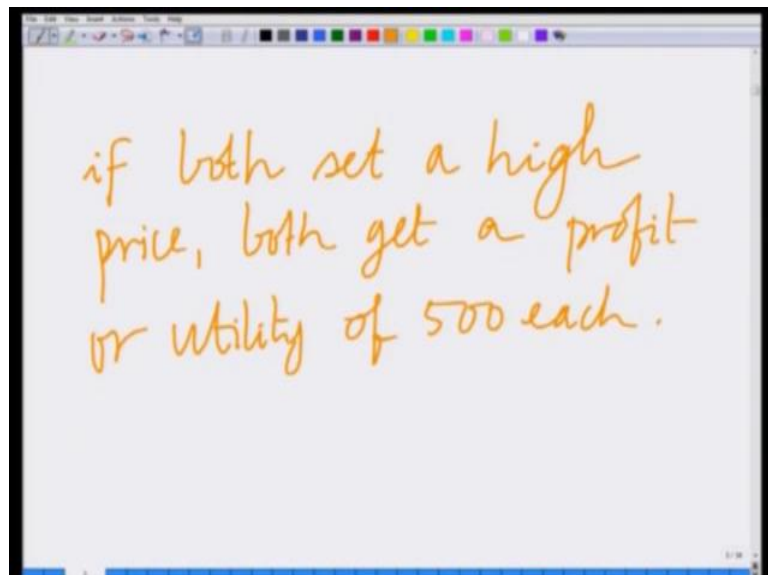 File Edit View Insert Actions Tools Help
if both set a high
price, both get a profit
or utility of 500 each.